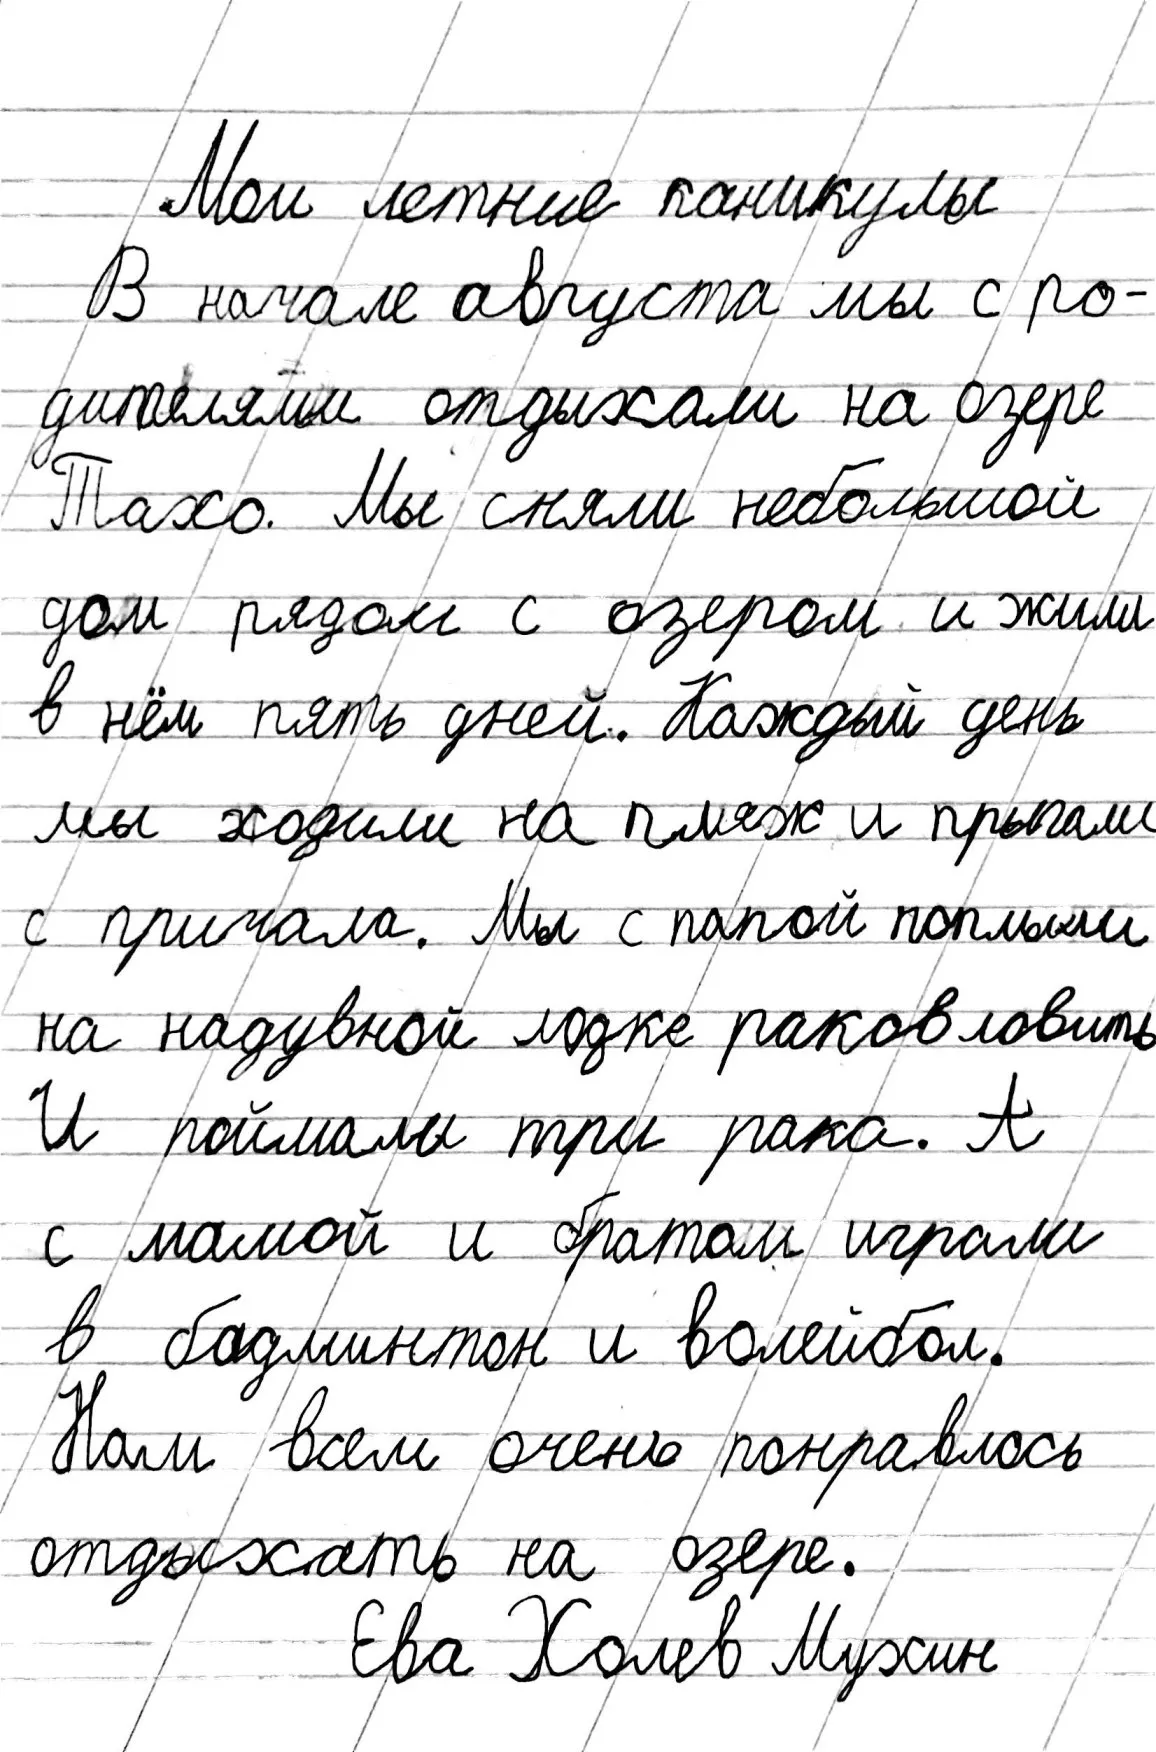 Мои летние каникулы
В начале августа мы с ро-
дителями отдыхали на озере
Тахо. Мы сняли небольшой
дом рядом с озером и жили
в нём пять дней. Каждый день
мы ходили на пляж и прыгали
с причала. Мы с папой поплыли
на надувной лодке раков ловить
И поймалы три рака. А
с мамой и братом играли
в бадминтон и волейбол.
Нам всем очень понравлось
отдыхать на озере.
Ева Холев Мухин